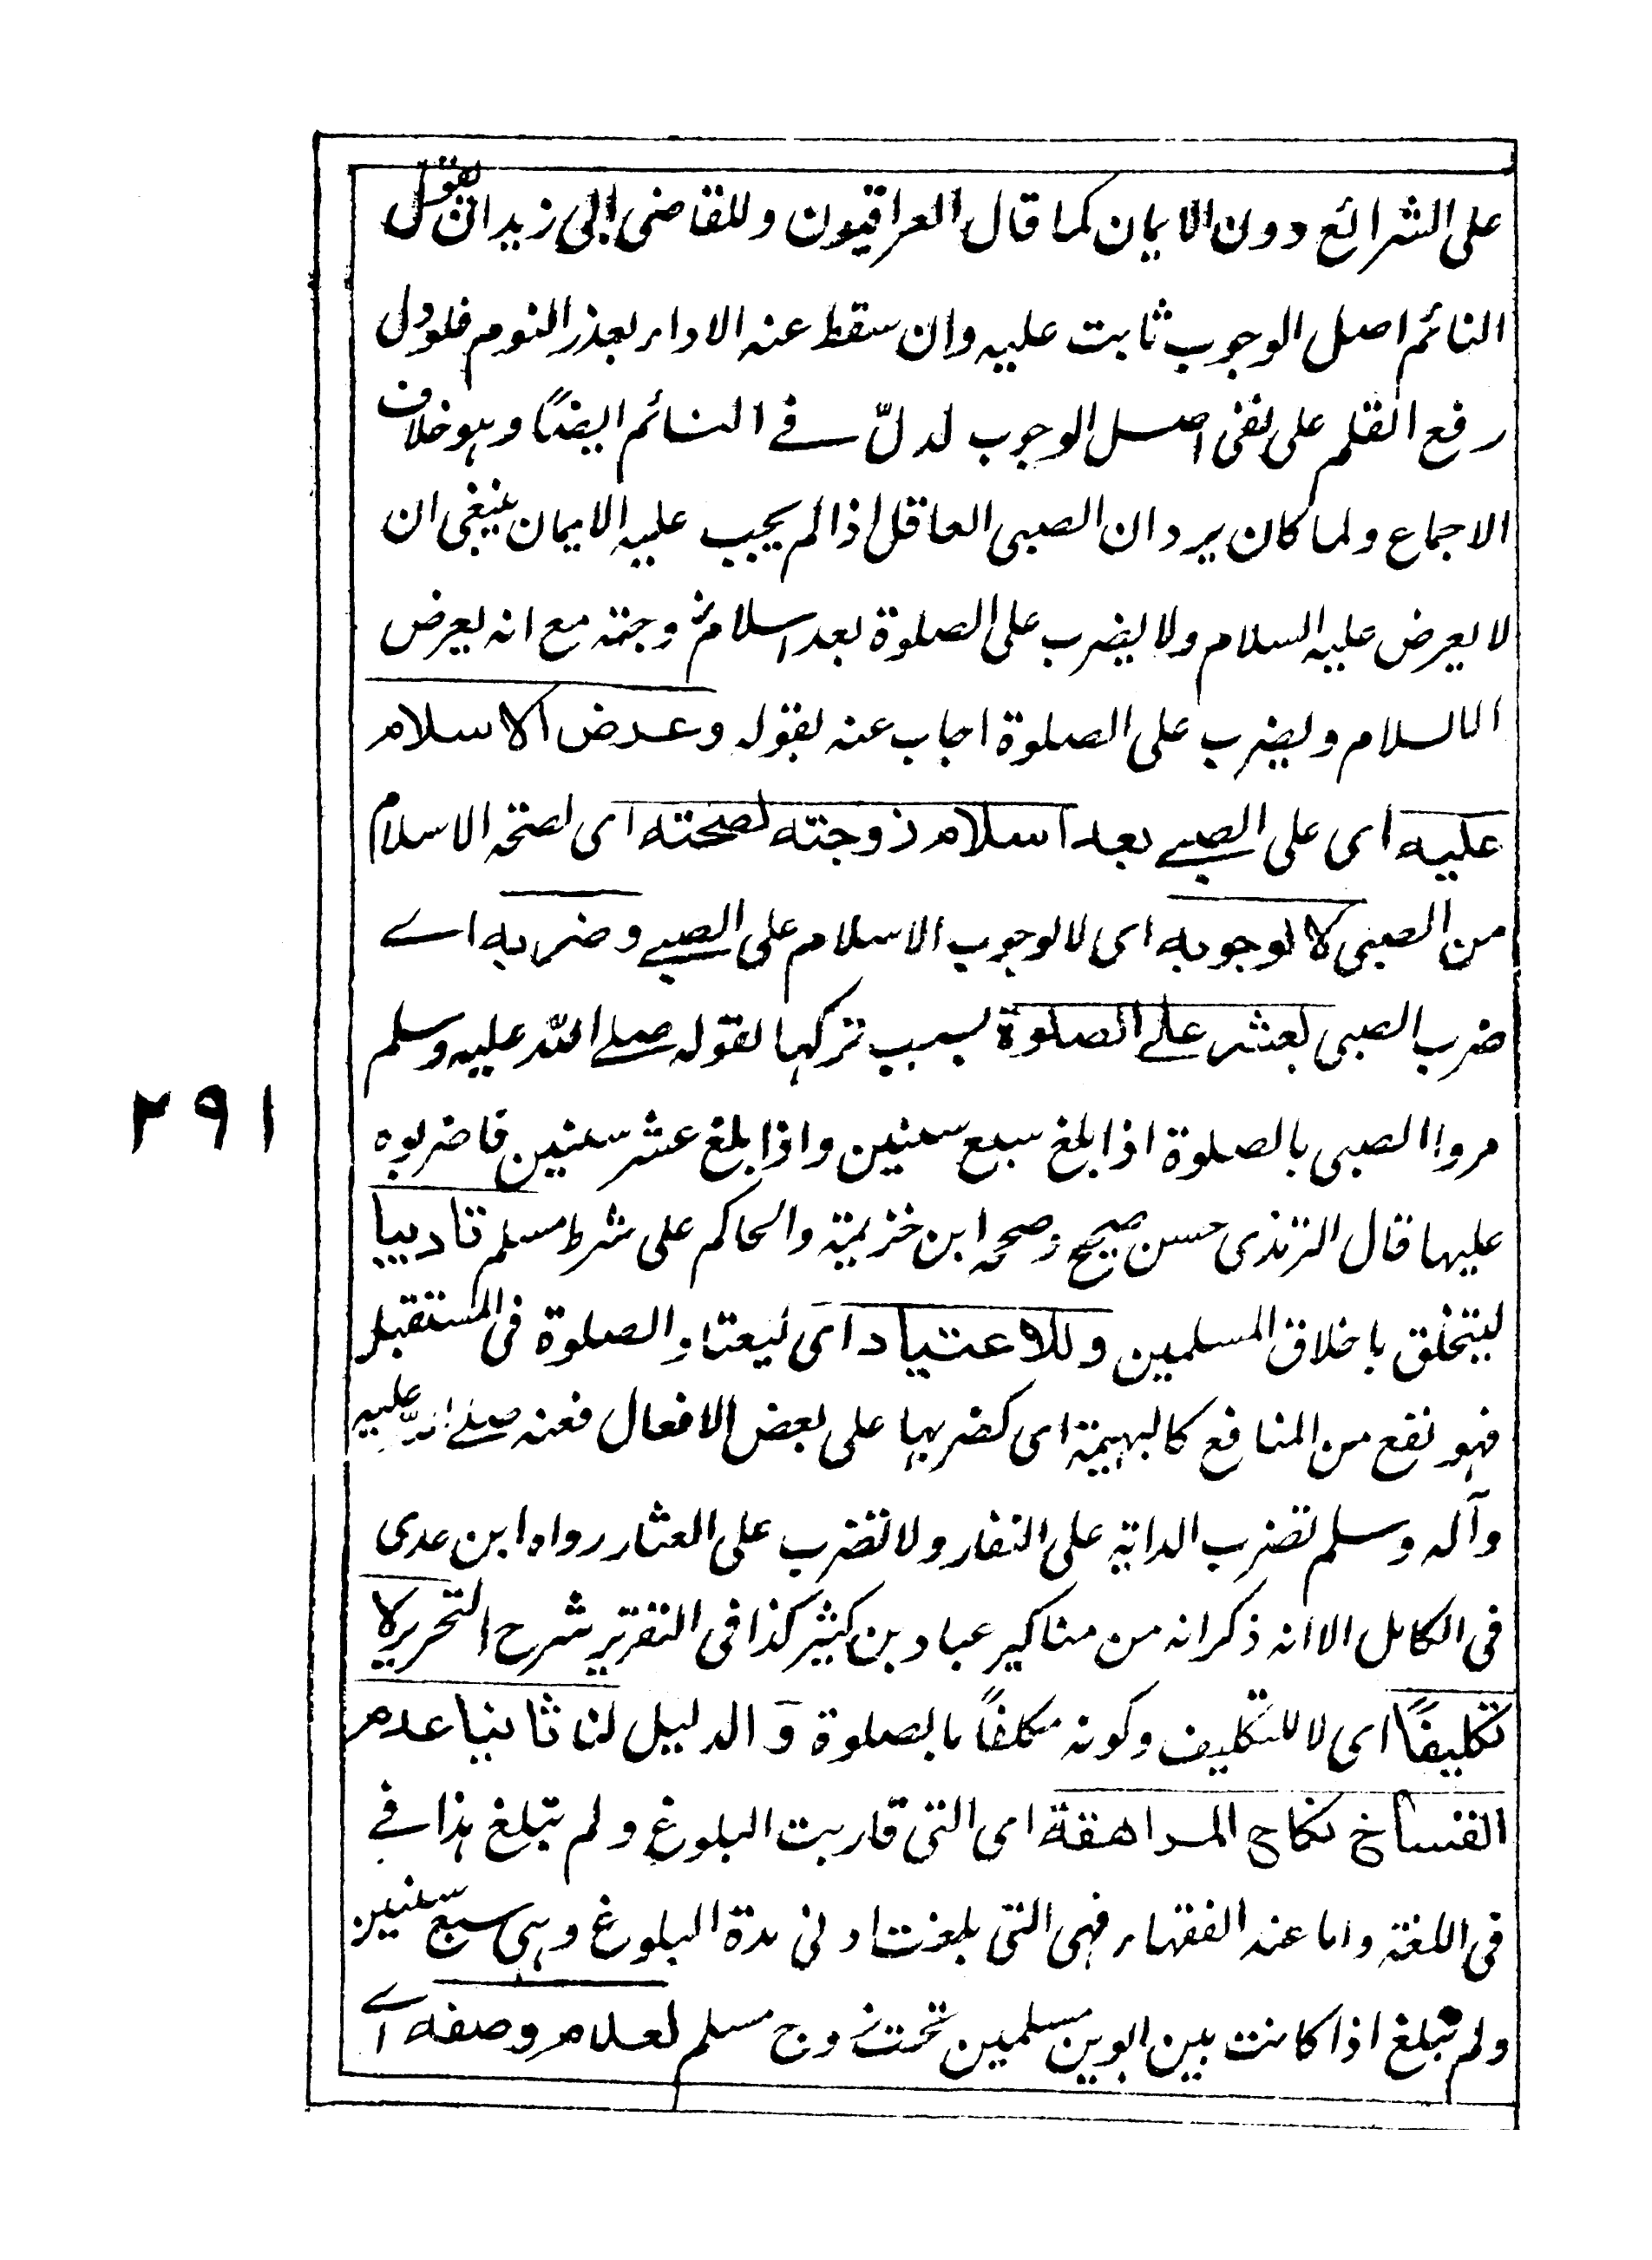 على الشرائع دون الايمان كما قال العراقيون وللقاضى ابى زيد ان يقول
النائم اصل الوجوب ثابت عليه وان سقط عنه الاداء بعذر النوم فلو دل
رفع القلم على نفى اصل الوجوب لدلّ فے النائم ايضًا وهو خلاف
الاجماع ولما كان يرد ان الصبى العاقل اذا لم يجب عليه الايمان ينبغى ان
لا يعرض عليه السلام ولا يضرب على الصلوة بعد اسلام زوجته مع انه يعرض
الاسلام ويضرب على الصلوة اجاب عنه بقوله وعرض الاسلام
عليه اى على الصبے بعد اسلام زوجته لصحته اى لصحة الاسلام
من الصبى لا لوجوبه اى لا لوجوب الاسلام على الصبے وضربه اے
ضرب الصبى لعشر علے الصلوة بسبب تركها لقوله صلے اللّه عليه وسلم
مروا الصبى بالصلوة اذا بلغ سبع سنين واذا بلغ عشر سنين فاضربوه
عليها قال الترمذى حسن صحيح وصححه ابن خزيمة والحاكم على شرط مسلم تاديبا
ليتخلق باخلاق المسلمين وللاعتياد اى ليعتاد الصلوة فى المستقبل
فهو نفع من المنافع كالبهيمة اى كضربها على بعض الافعال فعنه صلے اللّه عليه
وآله وسلم تضرب الدابة على النفار ولا تضرب على العثار رواه ابن عدى
فى الكامل الا انه ذكر انه من مناكير عباد بن كثير كذا فى التقرير شرح التحرير لا
تكليفًا اى لا للتكليف وكونه مكلفًا بالصلوة وَ الدليل لنا ثانيا عدم
انفساخ نكاح المراهقة اى التى قاربت البلوغ ولم تبلغ هذا فے
فى اللغة واما عند الفقهاء فهى التى بلغت ادنى مدة البلوغ وهى سبع سنين
ولم تبلغ اذا كانت بين ابوين مسلمين تحت زوج مسلم لعدم وصفه اے
٢٩١